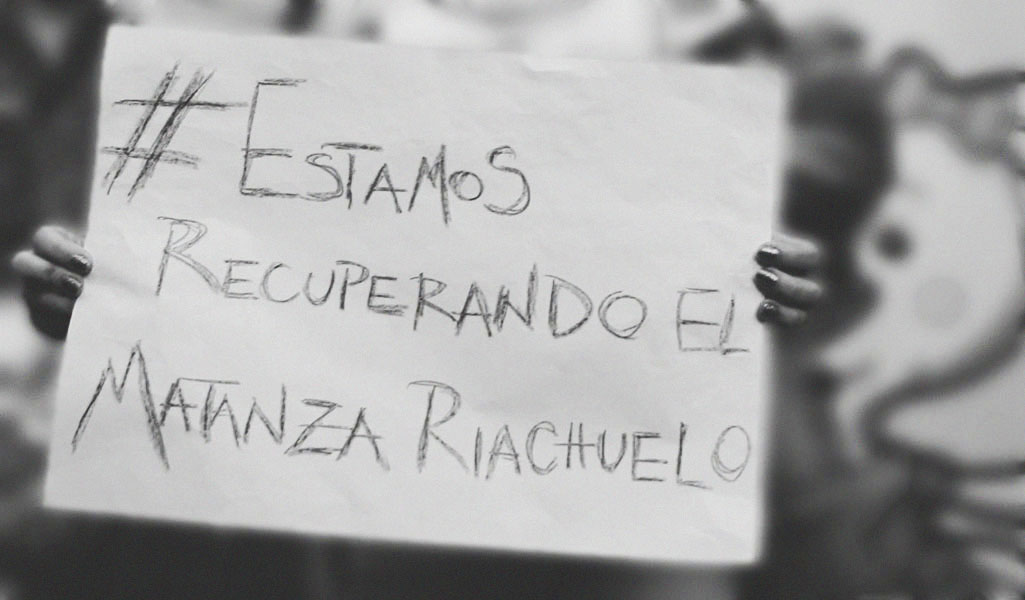 #ESTAMOS
RECUPERANDO EL
MATANZA RIACHUELO